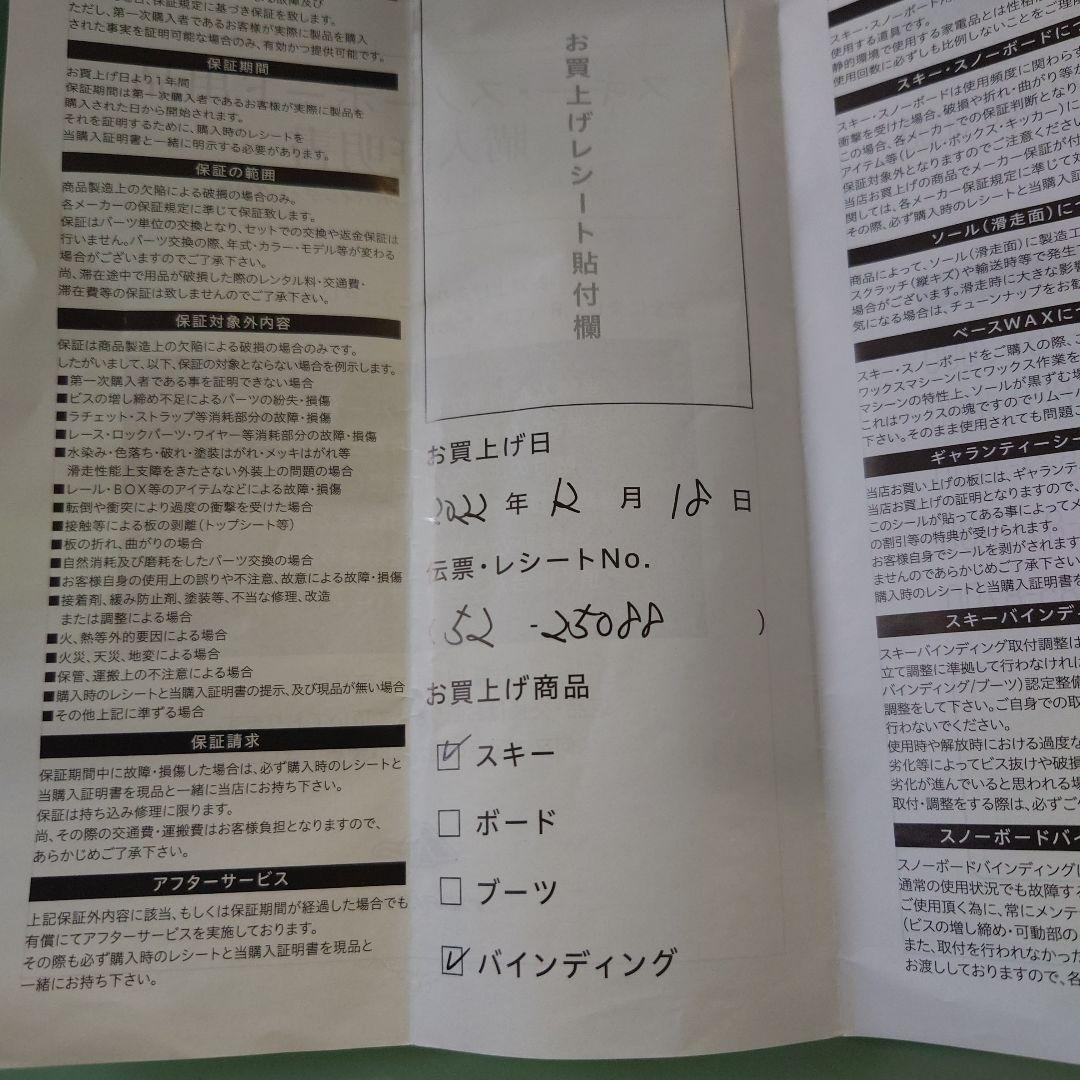 ただし、第一次購入者であるお客様が実際に製品を購入
された事実を証明可能な場合のみ、有効かつ提供可能です。
保証期間
お買上げ日より1年間
保証期間は第一次購入者であるお客様が実際に製品を
購入された日から開始されます。
それを証明するために、購入時のレシートを
当購入証明書と一緒に明示する必要があります。
保証の範囲
商品製造上の欠陥による破損の場合のみ。
各メーカーの保証規定に準じて保証致します。
保証はパーツ単位の交換となり、セットでの交換や返金保証は
行いません。パーツ交換の際、年式・カラー・モデル等が変わる
場合がございますのでご了承下さい。
尚、滞在途中で用品が破損した際のレンタル料・交通費・
滞在費等の保証は致しませんのでご了承下さい。
保証対象外内容
保証は商品製造上の欠陥による破損の場合のみです。
したがいまして、以下、保証の対象とならない場合を例示します。
■第一次購入者である事を証明できない場合
■ビスの増し締め不足によるパーツの紛失・損傷
■ラチェット・ストラップ等消耗部分の故障・損傷
■レース・ロックパーツ・ワイヤー等消耗部分の故障・損傷
■水染み・色落ち・破れ・塗装はがれ・メッキはがれ等
滑走性能上支障をきたさない外装上の問題の場合
■レール・BOX等のアイテムなどによる故障・損傷
■転倒や衝突により過度の衝撃を受けた場合
■接触等による板の剥離(トップシート等)
■板の折れ、曲がりの場合
■自然消耗及び磨耗をしたパーツ交換の場合
■お客様自身の使用上の誤りや不注意、故意による故障・損傷
■接着剤、緩み防止剤、塗装等、不当な修理、改造
または調整による場合
■火、熱等外的要因による場合
■火災、天災、地変による場合
■保管、運搬上の不注意による場合
■購入時のレシートと当購入証明書の提示、及び現品が無い場合
■その他上記に準ずる場合
保証請求
保証期間中に故障・損傷した場合は、必ず購入時のレシートと
当購入証明書を現品と一緒に当店にお持ち下さい。
保証は持ち込み修理に限ります。
尚、その際の交通費・運搬費はお客様負担となりますので、
あらかじめご了承下さい。
アフターサービス
上記保証外内容に該当、もしくは保証期間が経過した場合でも
有償にてアフターサービスを実施しております。
その際も必ず購入時のレシートと当購入証明書を現品と
一緒にお持ち下さい。
お買上げレシート貼付欄
お買上げ日
2022 年 12 月 18 日
伝票・レシートNo.
(52 -25088 )
お買上げ商品
☑ スキー
□ ボード
□ ブーツ
☑ バインディング
使用する道具です。
静的環境で使用する家電品とは性格
使用回数に必ずしも比例しないことをご理解
スキー・スノーボードにつ
スキー・スノーボードは使用頻度に関わらず
衝撃を受けた場合。破損や折れ・曲がり等が
この場合、各メーカーでの保証判断となり
アイテム等(レール・ボックス・キッカー)に
保証対象外となりますのでご注意ください
当店お買上げの商品でメーカー保証が付
関しては、各メーカー保証規定に準じて対
その際、必ず購入時のレシートと当購入証
ソール(滑走面)につ
商品によって、ソール(滑走面)に製造工
スクラッチ(縦キズ)や輸送時等で発生
場合がございます。滑走時に大きな影響
気になる場合は、チューンナップをお勧
ベースWAXにつ
スキー・スノーボードをご購入の際、こ
ワックスマシーンにてワックス作業を
マシーンの特性上、ソールが黒ずむ場
これはワックスの塊ですのでリムーバ
下さい。そのまま使用されても問題こ
ギャランティーシー
当店お買い上げの板には、ギャランテ
当店お買上げの証明となりますので、
このシールが貼ってある事によってメ
の割引等の特典が受けられます。
お客様自身でシールを剥がされます
ませんのであらかじめご了承下さい
購入時のレシートと当購入証明書を
スキーバインディ
スキーバインディング取付調整は
立て調整に準拠して行わなければ
バインディング/ブーツ)認定整備
調整をして下さい。ご自身での取
行わないでください。
使用時や解放時における過度な
劣化等によってビス抜けや破損
劣化が進んでいると思われる場
取付・調整をする際は、必ずご
スノーボードバイ
スノーボードバインディングに
通常の使用状況でも故障する
ご使用頂く為に、常にメンテ
(ビスの増し締め・可動部の
また、取付を行われなかった
お渡ししておりますので、各